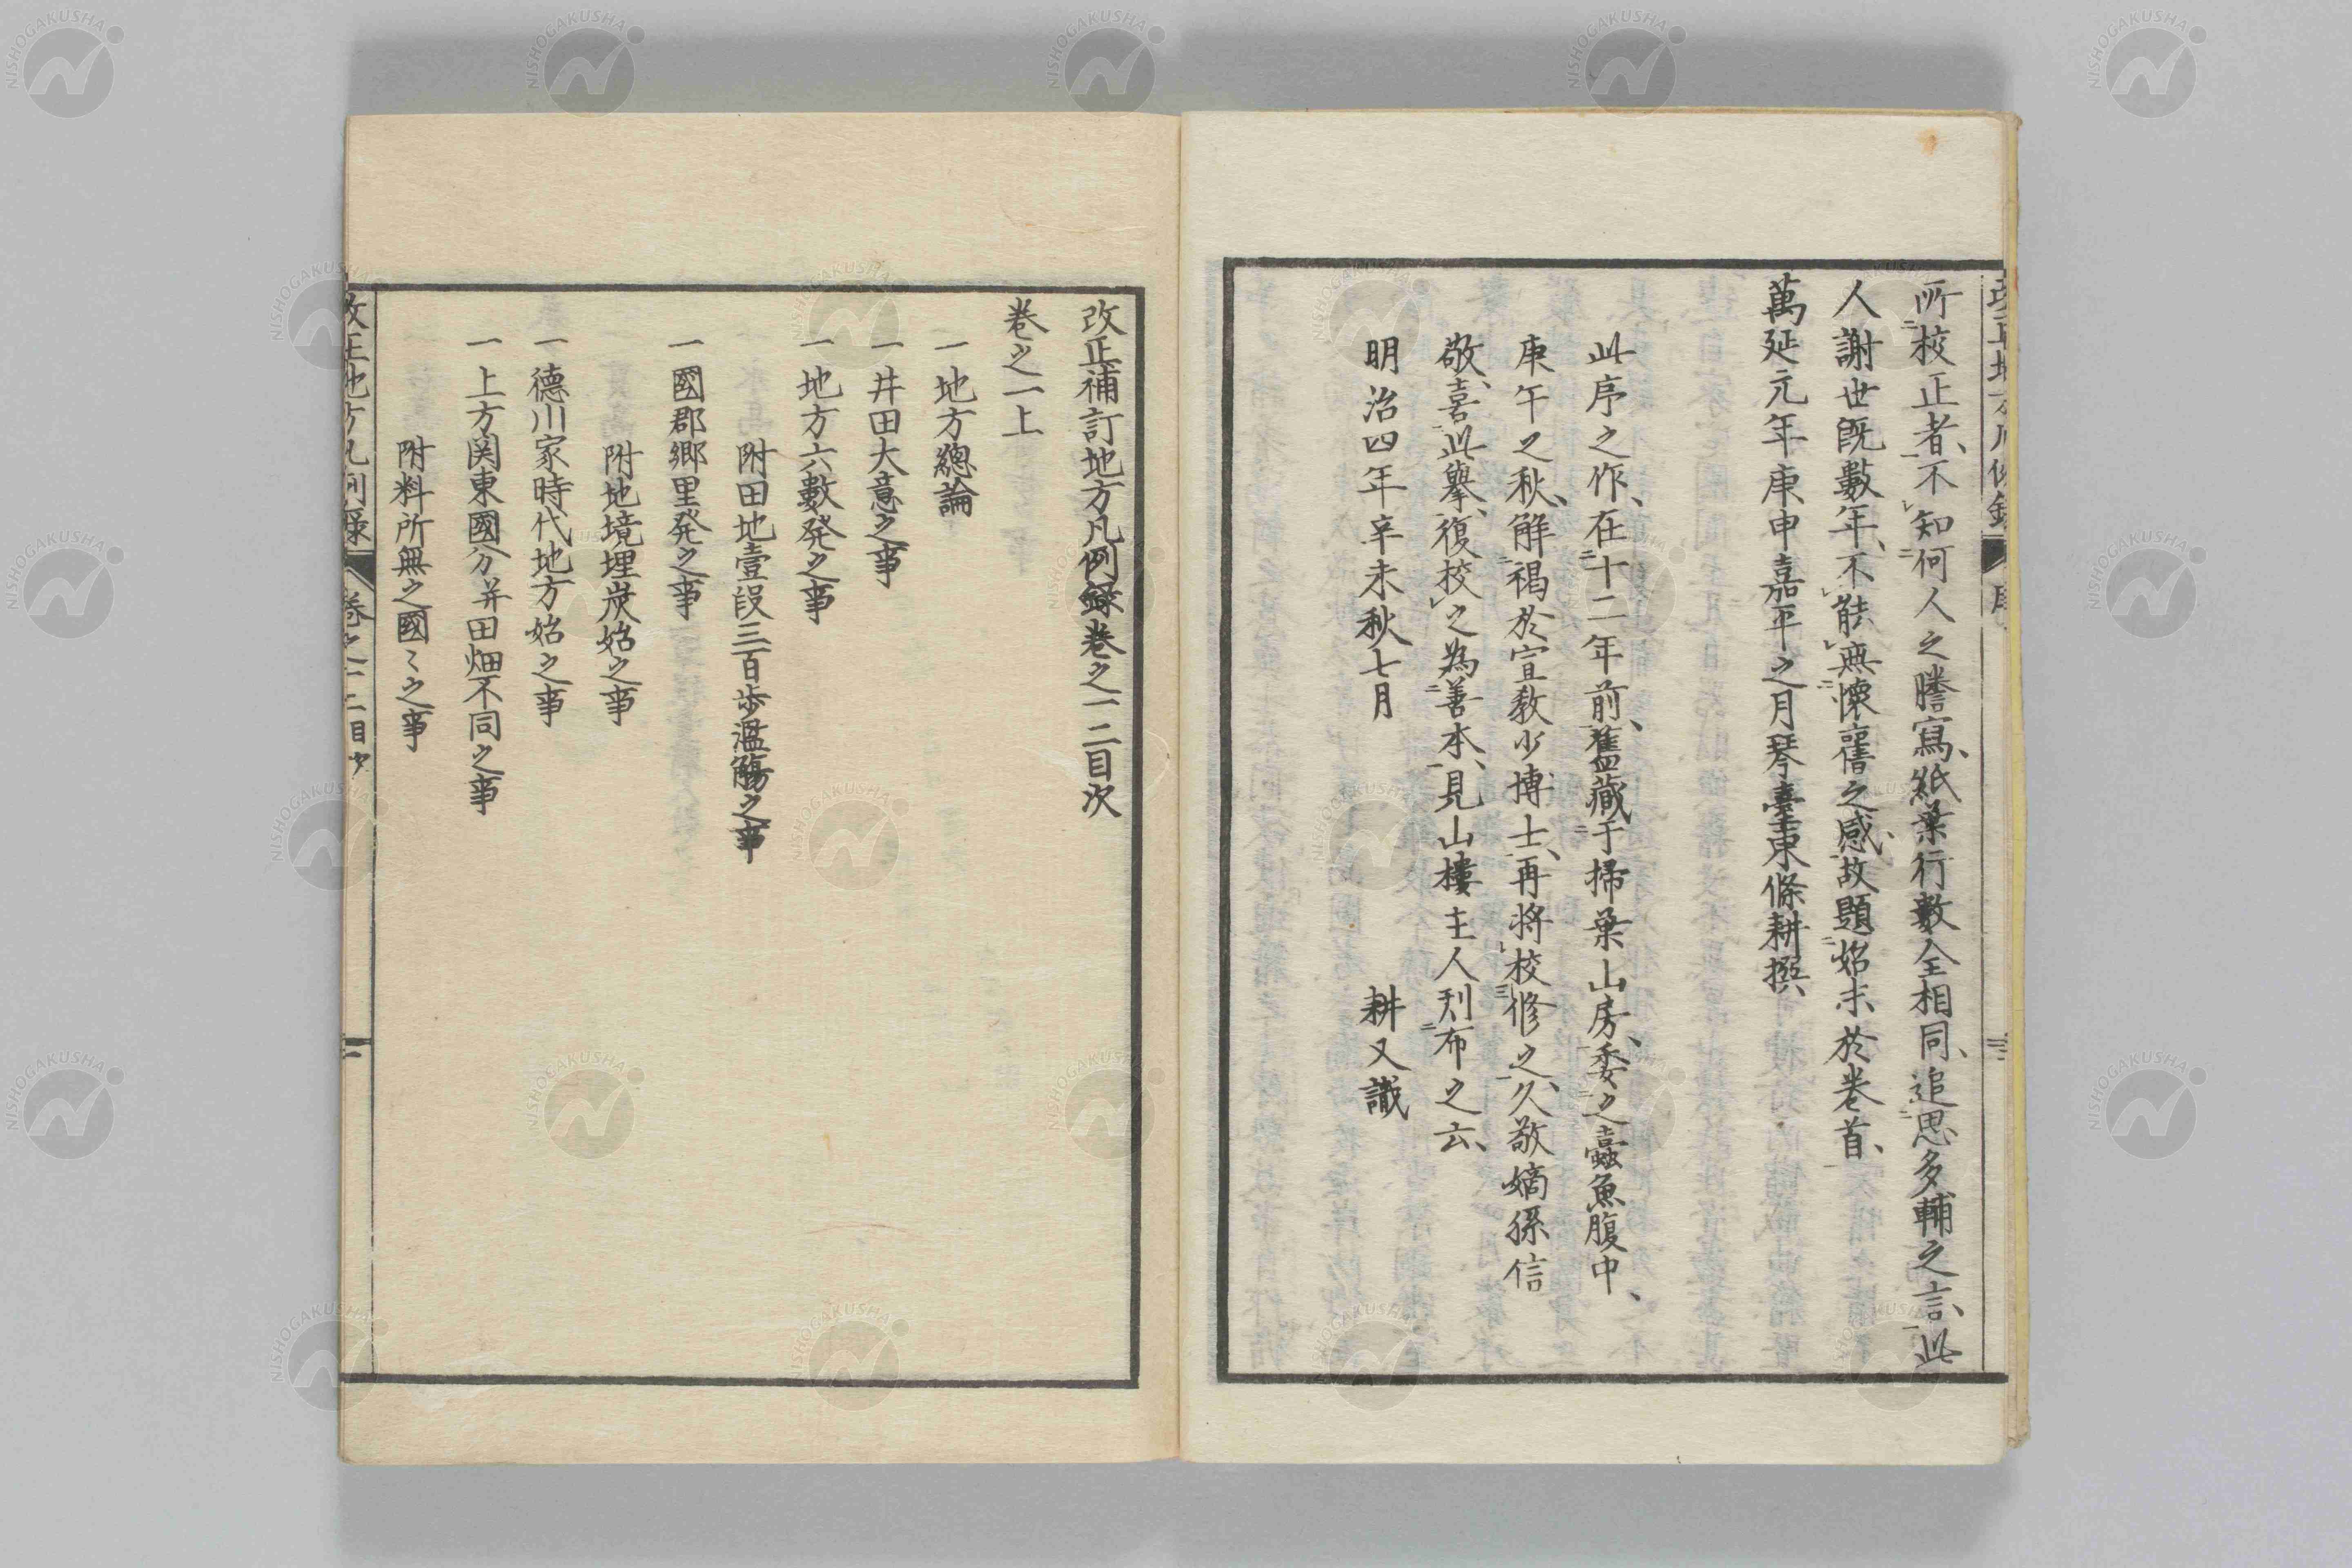 所校正者、不知何人之謄寫、紙葉行數全相同、追思多輔之言、此
人謝世既數年、不能無懷舊之感、故題始末於卷首、
萬延元年庚申嘉平之月琴臺東條耕撰
此序之作、在十二年前、舊藏于掃葉山房、委之蠧魚腹中、
庚午之秋、解褐於宣教少博士、再将校修之、久敬嫡孫信
敬、喜此舉、復校之為善本、見山樓主人刊布之云、
明治四年辛未秋七月 耕又識
改正補訂地方凡例錄卷之一二目次
卷之一上
一地方總論
一井田大意之事
一地方六數発之事
附田地壹段三百歩濫觴之事
一國郡郷里発之事
附地境埋炭始之事
一德川家時代地方始之事
一上方関東國分并田畑不同之事
附料所無之國〻之事
改正地方凡例録 卷之一二目次 一
NISHOGAKUSHA